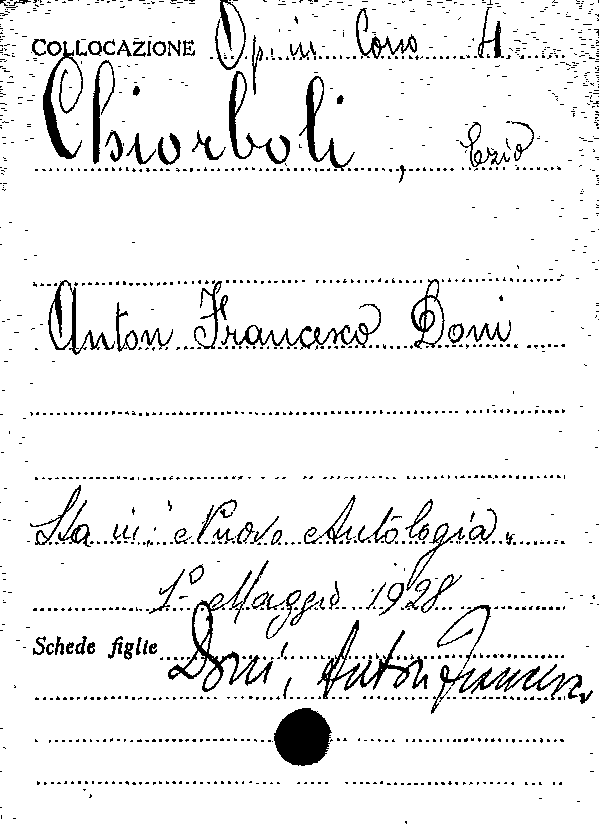 COLLOCAZIONE Op. in Corso H
Chiorboli, Ezio
Anton Francesco Doni
Sta in: "Nuova Antologia"
1º Maggio 1928
Schede figlie Doni, Anton Francesco